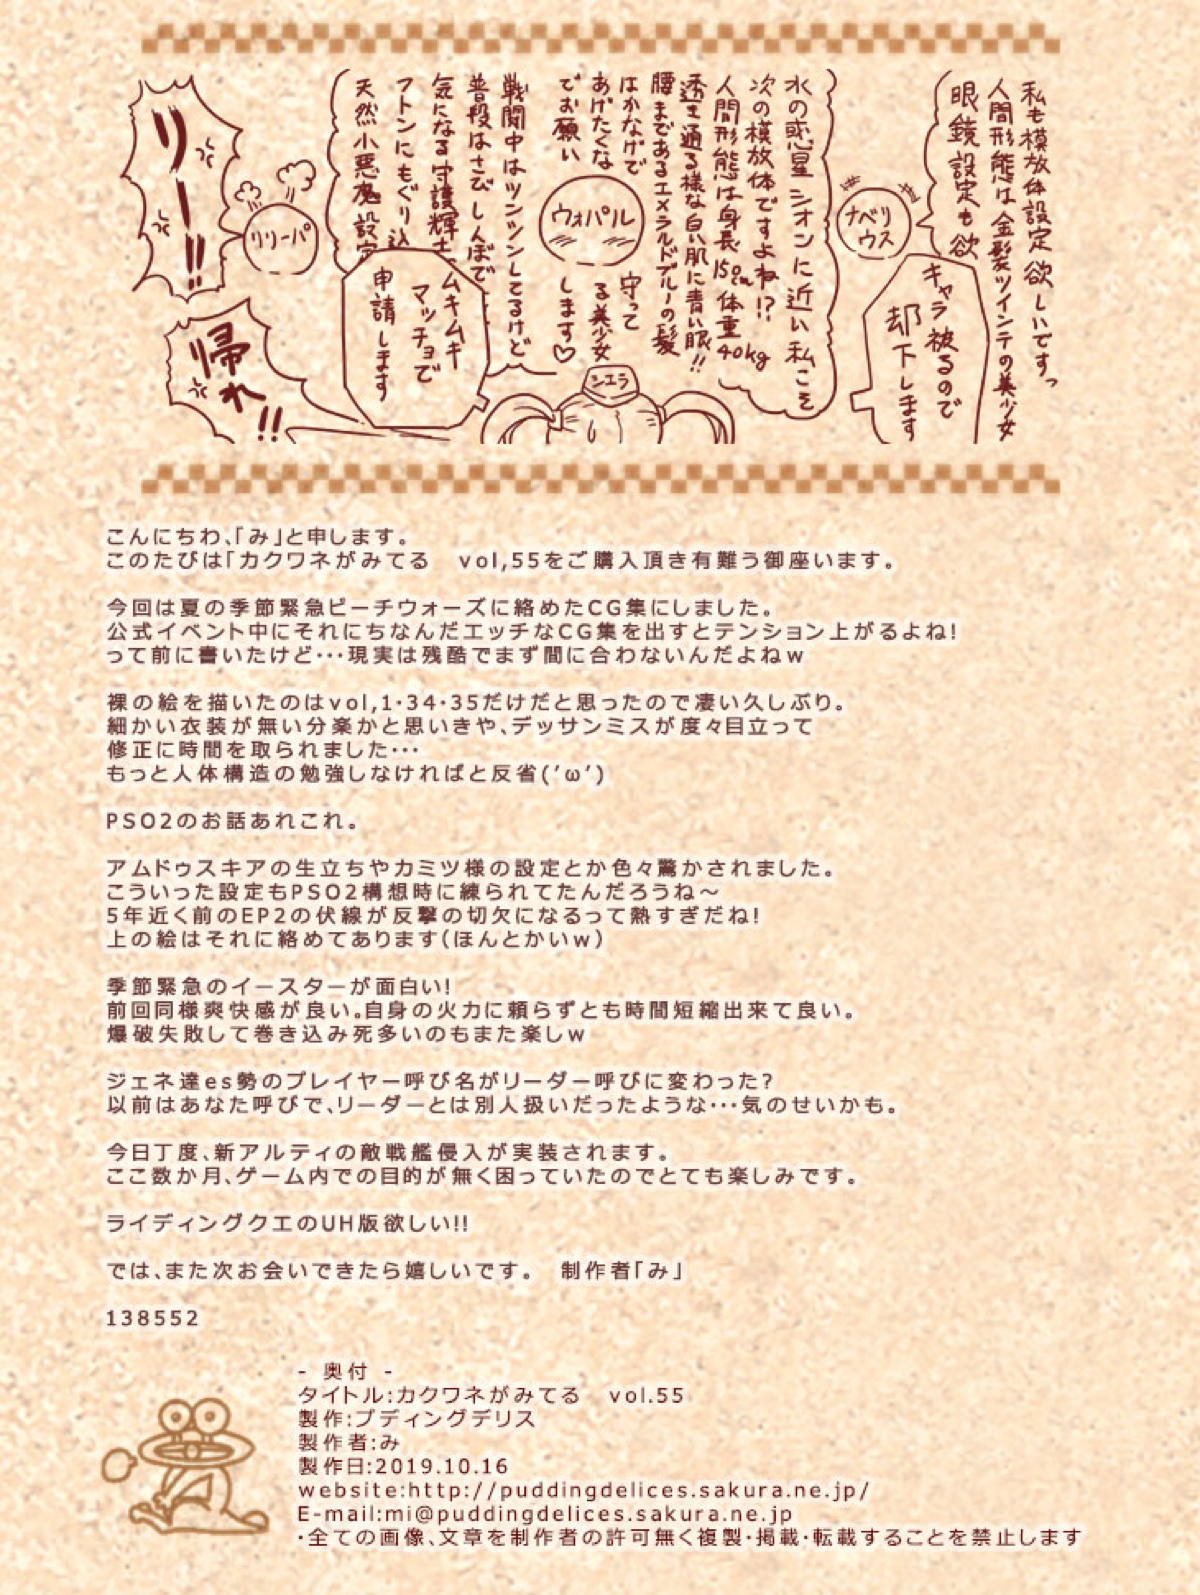 私も模放体設定欲しいですっ
人間形態は金髪ツインテの美少女
眼鏡設定も欲
ナベリ
ウス
キャラ被るので
却下します
水の惑星シオンに近い私こそ
次の模放体ですよね!?
人間形態は身長150cm体重40kg
透き通る様な白い肌に青い眼!!
腰まであるエメラルドブルーの髪
はかなげで守って
あげたくなる美少女
でお願いします♡
ウォパル
戦闘中はツンツンしてるけど
普段はさびしんぼで
気になる守護輝士
フトンにもぐり込
天然小悪魔設定
シエラ
ムキムキ
マッチョで
申請します
リリーパ
リーー!!
帰れ!!
こんにちわ、「み」と申します。
このたびは「カクワネがみてる　vol,55をご購入頂き有難う御座います。
今回は夏の季節緊急ビーチウォーズに絡めたCG集にしました。
公式イベント中にそれにちなんだエッチなCG集を出すとテンション上がるよね!
って前に書いたけど・・・現実は残酷でまず間に合わないんだよねw
裸の絵を描いたのはvol,1・34・35だけだと思ったので凄い久しぶり。
細かい衣装が無い分楽かと思いきや、デッサンミスが度々目立って
修正に時間を取られました・・・
もっと人体構造の勉強しなければと反省('ω')
PSO2のお話あれこれ。
アムドゥスキアの生立ちやカミツ様の設定とか色々驚かされました。
こういった設定もPSO2構想時に練られてたんだろうね～
5年近く前のEP2の伏線が反撃の切欠になるって熱すぎだね!
上の絵はそれに絡めてあります(ほんとかいw)
季節緊急のイースターが面白い!
前回同様爽快感が良い。自身の火力に頼らずとも時間短縮出来て良い。
爆破失敗して巻き込み死多いのもまた楽しw
ジェネ達es勢のプレイヤー呼び名がリーダー呼びに変わった?
以前はあなた呼びで、リーダーとは別人扱いだったような・・・気のせいかも。
今日丁度、新アルティの敵戦艦侵入が実装されます。
ここ数か月、ゲーム内での目的が無く困っていたのでとても楽しみです。
ライディングクエのUH版欲しい!!
では、また次お会いできたら嬉しいです。　制作者「み」
138552
- 奥付 -
タイトル:カクワネがみてる　vol.55
製作:プディングデリス
製作者:み
製作日:2019.10.16
website:http://puddingdelices.sakura.ne.jp/
E-mail:mi@puddingdelices.sakura.ne.jp
・全ての画像、文章を制作者の許可無く複製・掲載・転載することを禁止します